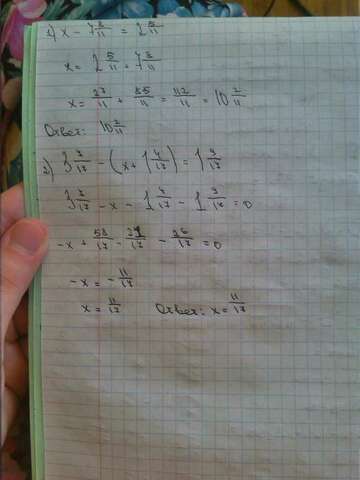 1) x - 7 8/11 = 2 5/11
x = 2 5/11 = 7 8/11
x = 27/11 + 85/11 = 112/11 = 10 2/11
Ответ: 10 2/11
2) 3 7/17 - (x + 1 4/17) = 1 9/17
3 7/17 - x - 1 4/17 - 1 9/17 = 0
-x + 58/17 - 21/17 - 26/17 = 0
-x = - 11/17
x = 11/17 Ответ: x = 11/17